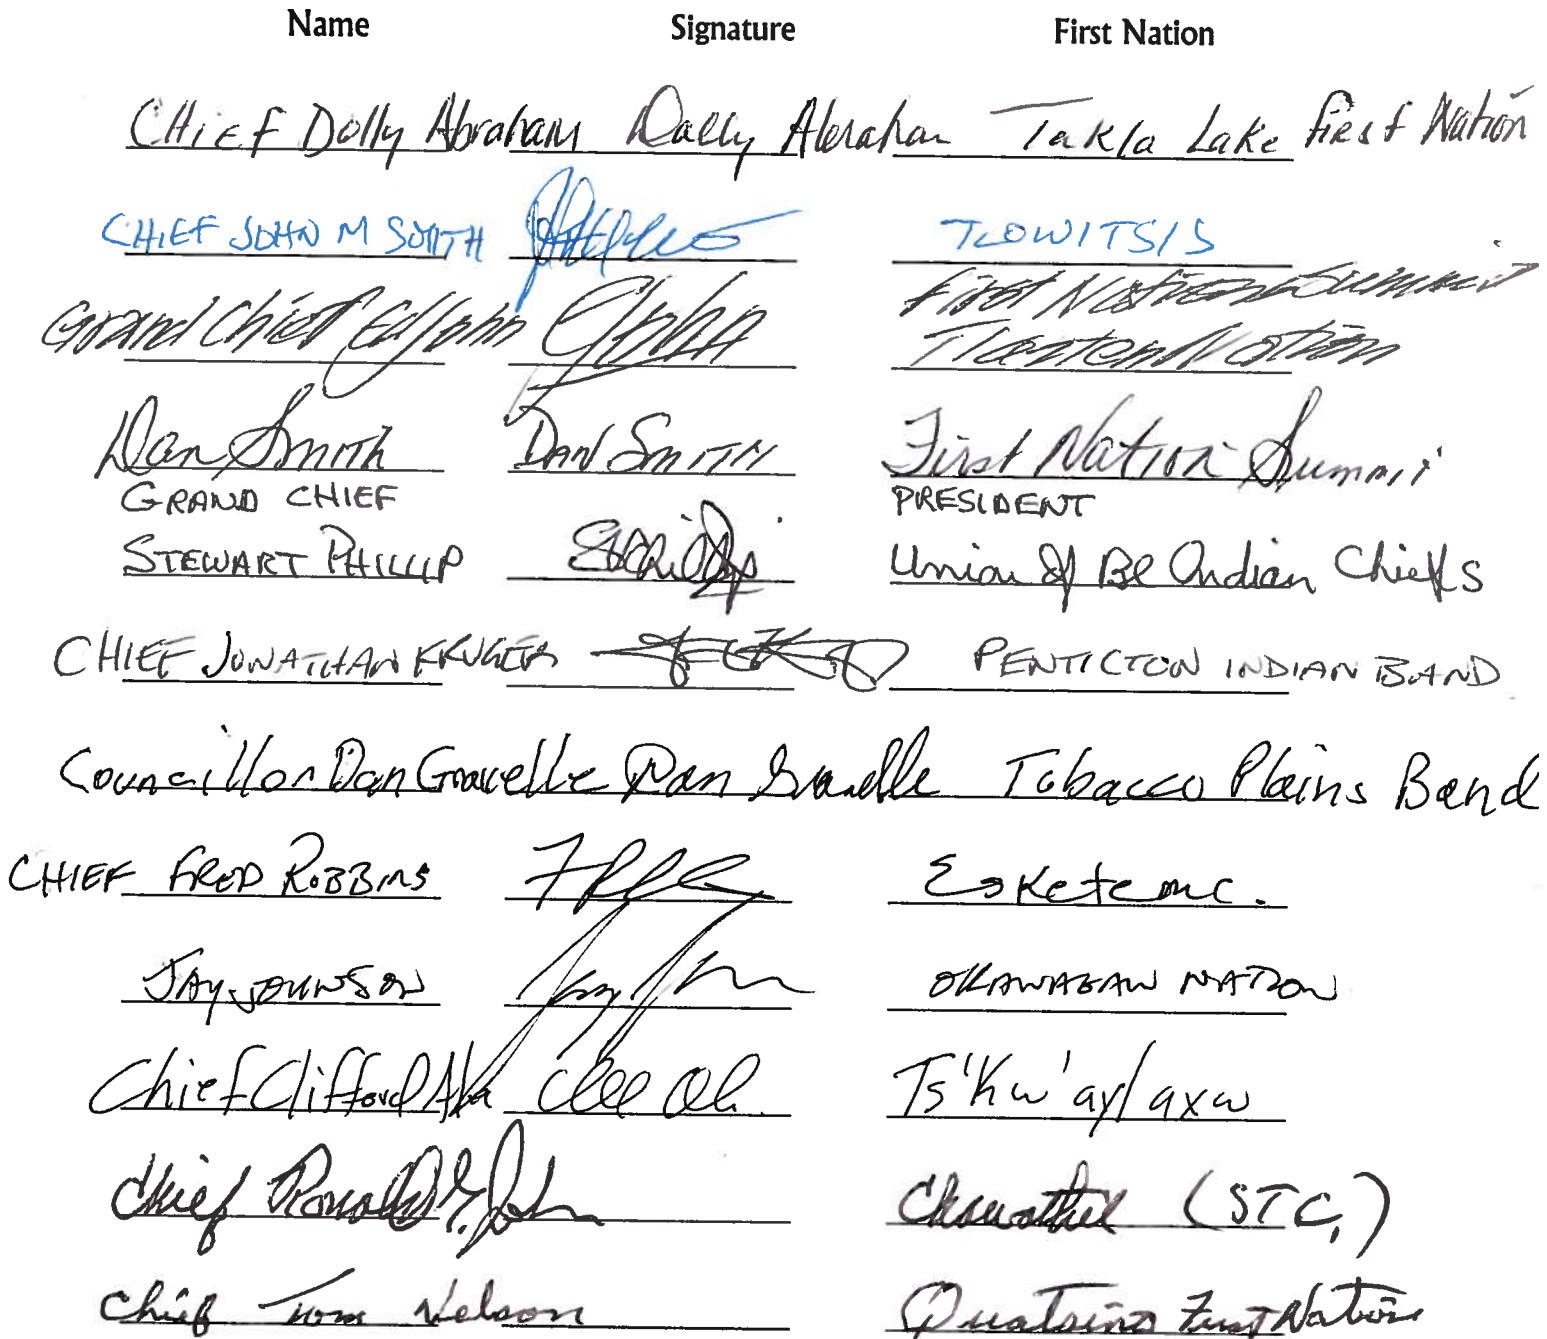 Name Signature First Nation
CHIEF Dolly Abraham Dolly Abraham Takla Lake First Nation
CHIEF JOHN M SMITH TLOWITSIS
First Nations Summit
Grand Chief Ed John Tlazten Nation
Dan Smith DAN SMITH First Nation Summit
GRAND CHIEF PRESIDENT
STEWART PHILLIP Union of BC Indian Chiefs
CHIEF JONATHAN KRUGER PENTICTON INDIAN BAND
Councillor Dan Gravelle Dan Gravelle Tobacco Plains Band
CHIEF FRED ROBBINS Esketemc.
JAY JOHNSON OKANAGAN NATION
Chief Clifford Ts'Kw'aylaxw
Chief Ronald John (STC)
Chief Tom Nelson Quatsino First Nation